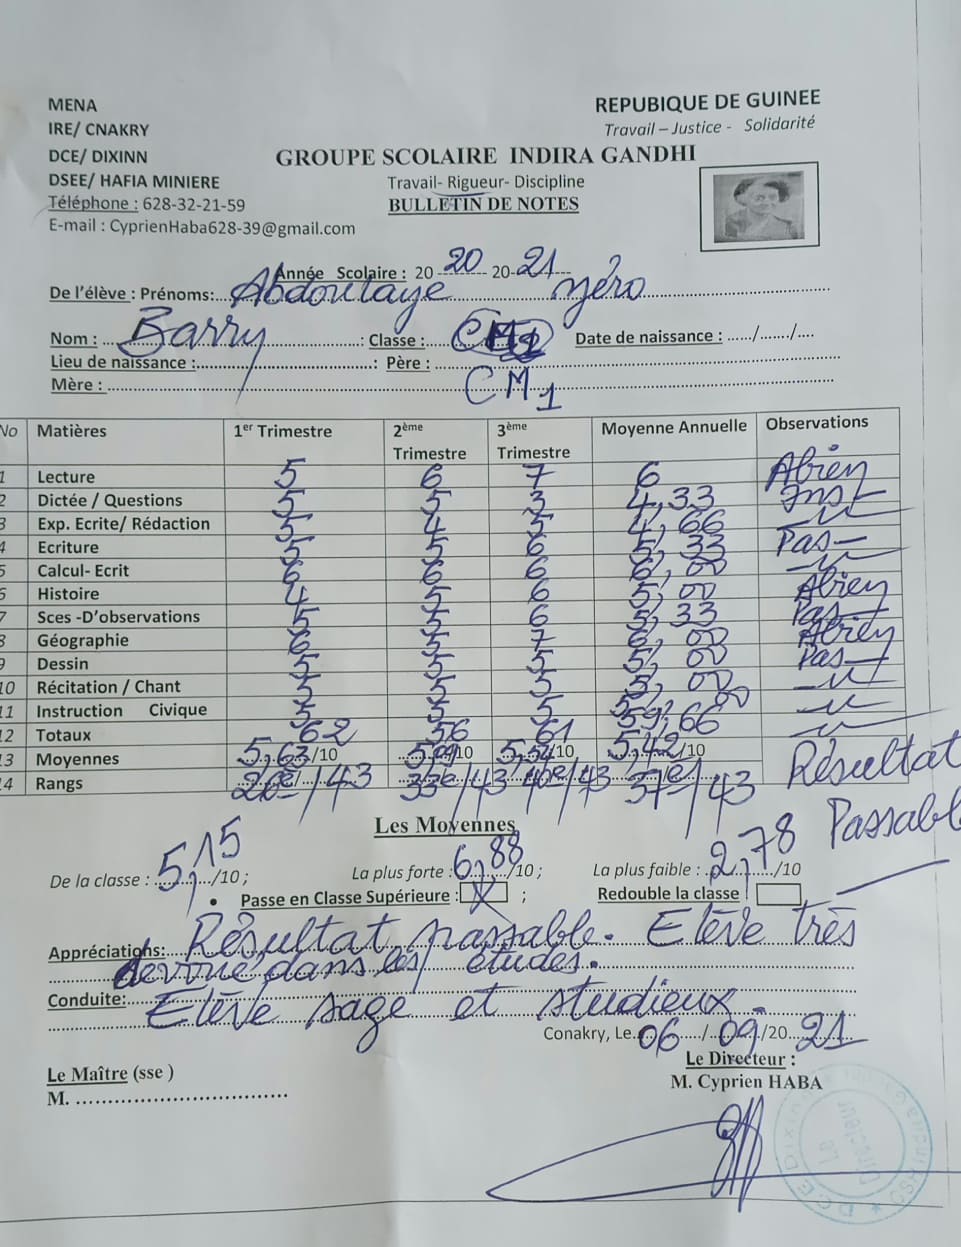 MENA
REPUBIQUE DE GUINEE
IRE/ CNAKRY
Travail – Justice - Solidarité
DCE/ DIXINN
GROUPE SCOLAIRE INDIRA GANDHI
DSEE/ HAFIA MINIERE
Travail- Rigueur- Discipline
Téléphone : 628-32-21-59
BULLETIN DE NOTES
E-mail : CyprienHaba628-39@gmail.com
Année Scolaire : 20 20 20-21
De l'élève : Prénoms: Abdoulaye yéro
Nom : Barry : Classe : Date de naissance : ....../......./....
Lieu de naissance : : Père :
Mère : CM1
No Matières 1er Trimestre 2ème Trimestre 3ème Trimestre Moyenne Annuelle Observations
1 Lecture 5 6 7 6 Abien
2 Dictée / Questions 5 5 3 4,33 Inst
3 Exp. Ecrite/ Rédaction 5 4 5 4,66 —"—
4 Ecriture 5 5 6 5,33 Pas—
5 Calcul- Ecrit 6 6 6 6,00 —"—
6 Histoire 4 5 6 5,00 Abien
7 Sces -D'observations 5 5 6 5,33 Pas—
8 Géographie 6 5 7 6,00 Abien
9 Dessin 5 5 5 5,00 Pas—
10 Récitation / Chant 5 5 5 5,00 —"—
11 Instruction Civique 5 5 5 5,00 —"—
12 Totaux 62 56 61 59,66 —"—
13 Moyennes 5,63/10 5,09/10 5,54/10 5,42/10 Résultat
14 Rangs 26e/43 33e/43 40e/43 37e/43
Passabl
Les Moyennes
De la classe : 5,15/10 ; La plus forte : 6,88/10 ; La plus faible : 2,78/10
• Passe en Classe Supérieure : X ; Redouble la classe
Appréciations: Résultat passable. Elève très
dévoué dans les études.
Conduite: Elève sage et studieux.
Conakry, Le 06/09/2021
Le Directeur :
Le Maître (sse )
M. Cyprien HABA
M.
Le
Directeur